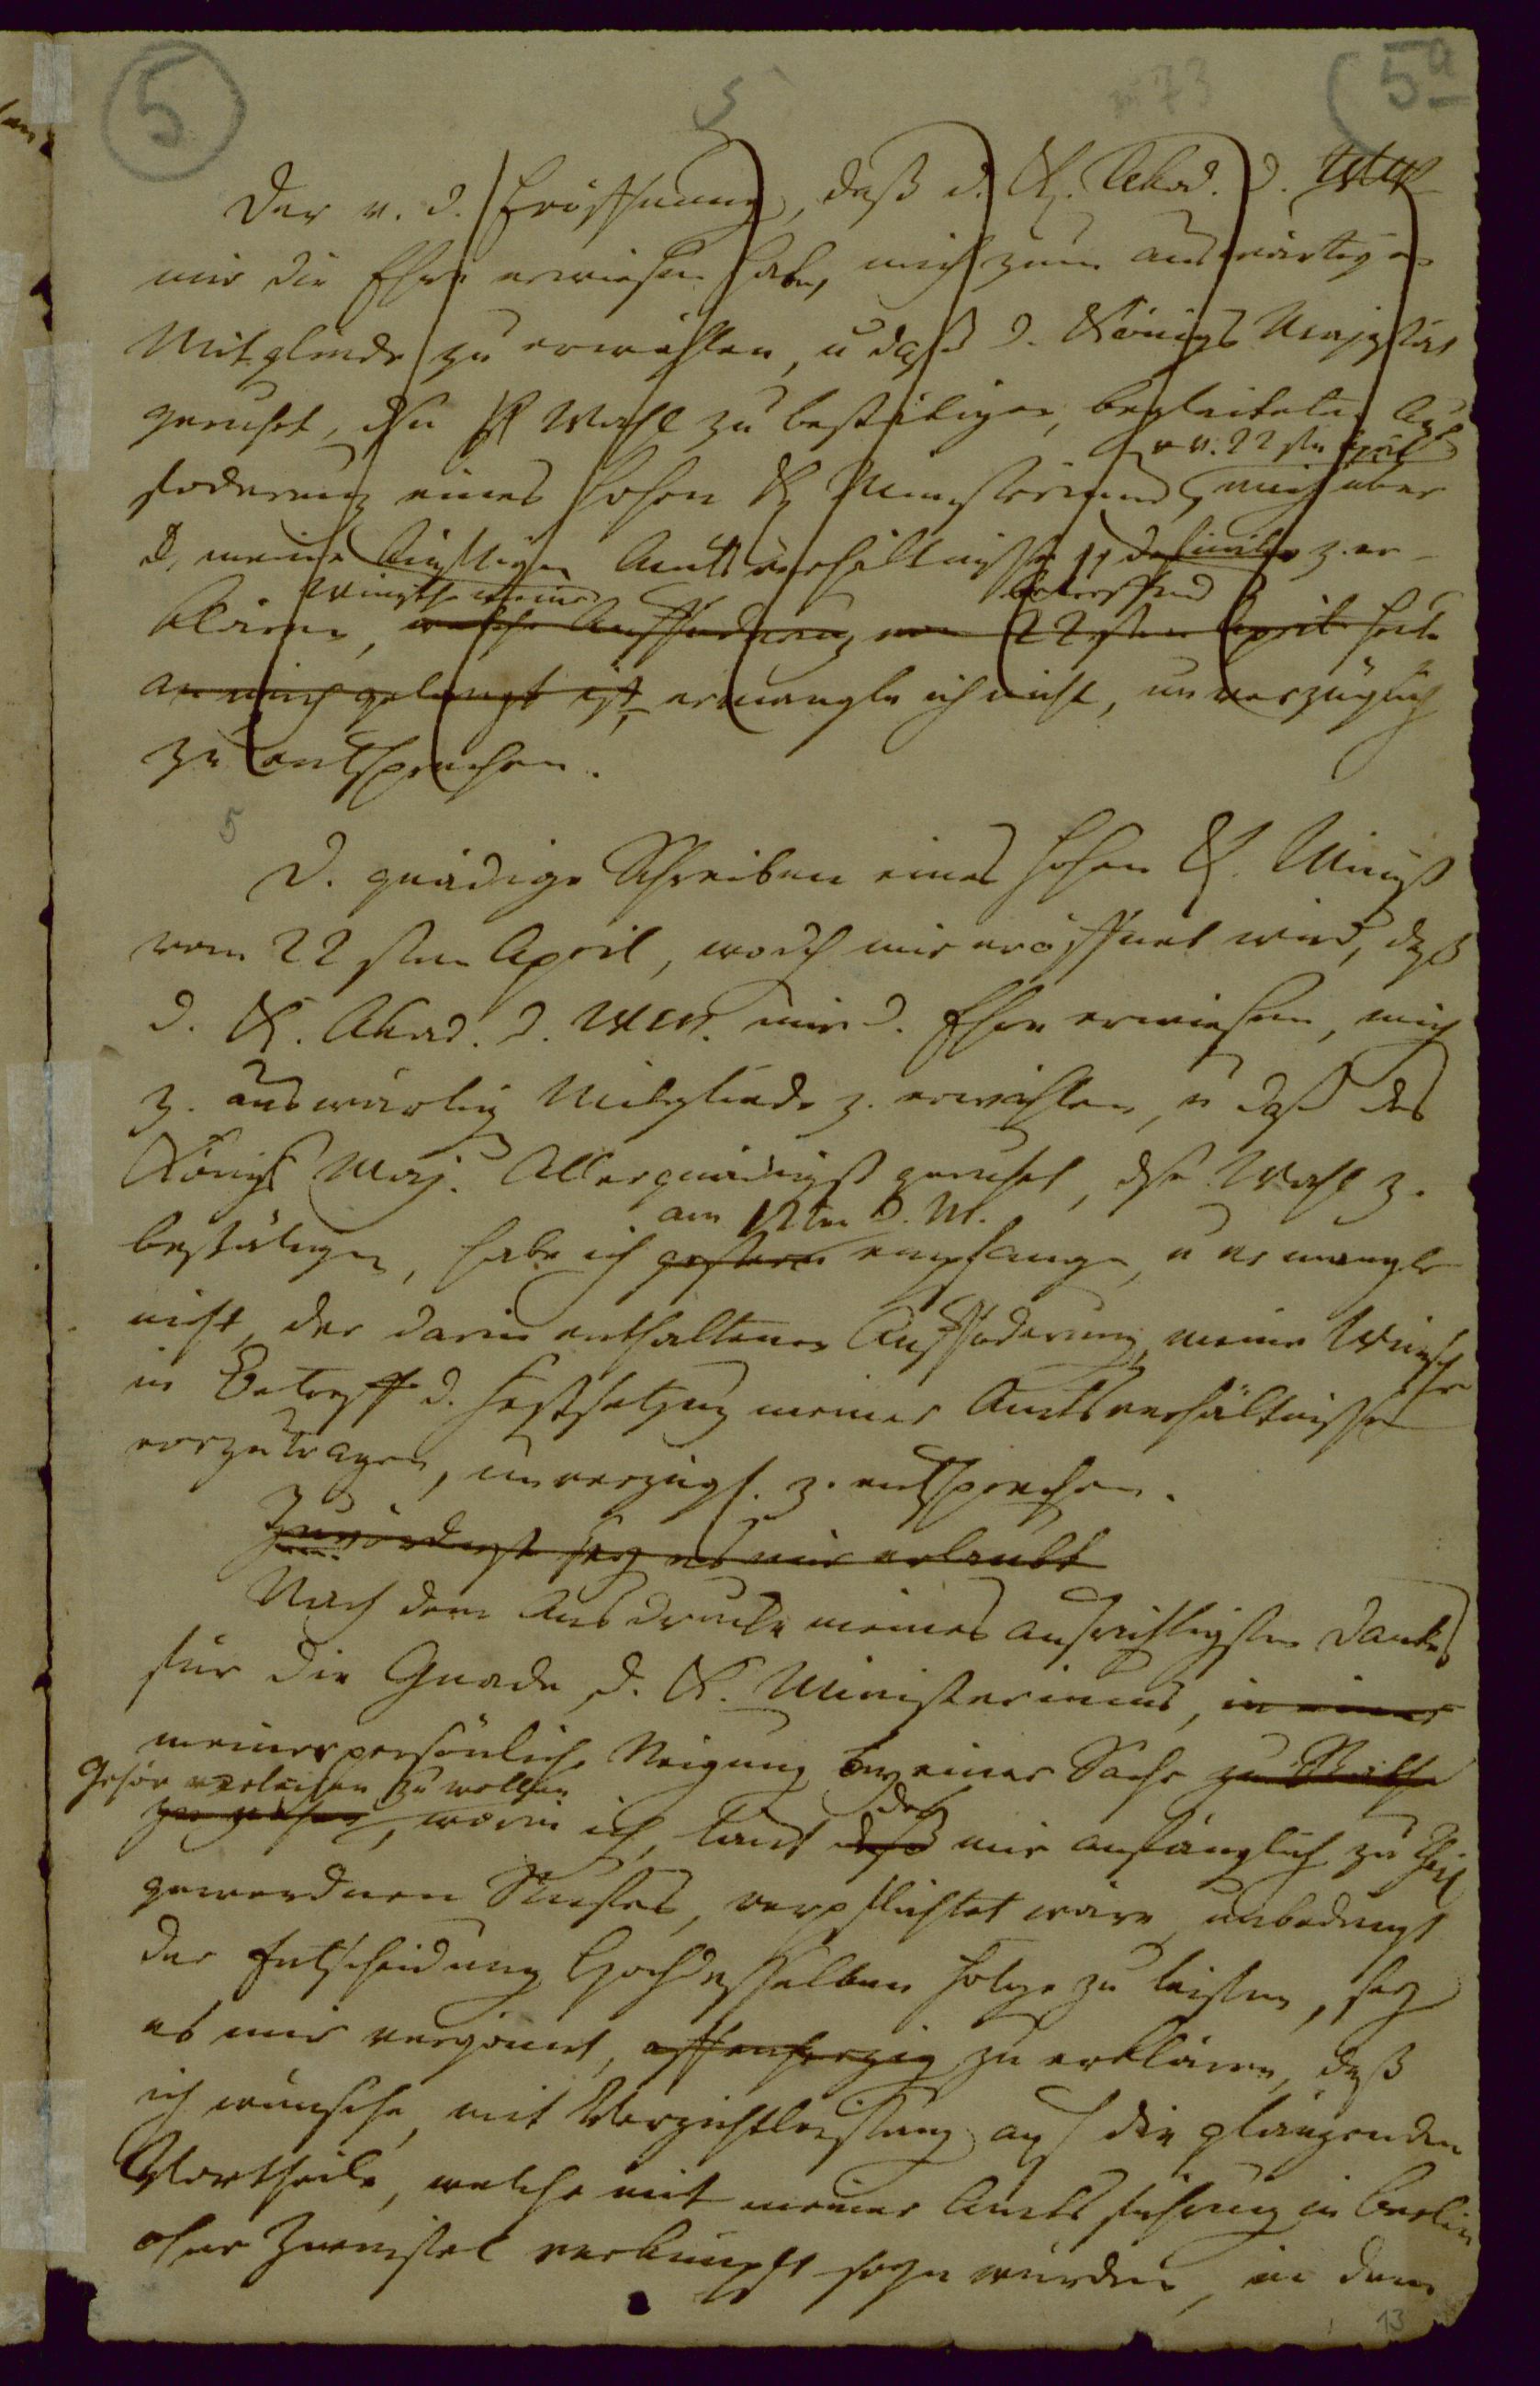 5
5
73
5a
Der v. d. Eröffnung, daß d. K. Akad. d. WW
mir die Ehre erwiesen habe, mich zum auswärtigen
Mitgliede zu erwählen, u daß d. Königs Majestät
geruhet, dse Wahl zu bestätigen, begleiteten Auf
v. 22sten April
foderung eines hohen K Ministeriums, mich über
meine künftigen Amtsverhältnisse z. er-
Wünsche meine betreffend
klären, welche Aufforderung vom 22sten April heute
an mich gelangt ist, ermangle ich nicht, unverzüglich
zu entsprechen.
5
D. gnädige Schreiben eines hohen K. Minist
vom 22sten April, wodch mir eröffnet wird, daß
d. K. Akad. d. WW. mir d. Ehre erwiesen, mich
z. auswärtig Mitgliede z. erwählen, u daß des
Königs Maj. Allergnädigst geruhet, dse Wahl z.
am 12ten d. M.
bestätigen, habe ich gestern empfangen, u ermangle
nicht, der darin enthaltenen Auffoderung, meine Wünsche
in Betreff d. Festsetzung meiner Amtsverhältnisse
vorzutragen, unverzügl. z. entsprechen.
Zuvörderst sey es mir erlaubt
Nach dem Ausdrucke meines aufrichtigsten Dankes
für die Gnade d. K. Ministeriums, in einer
meiner persönliche Neigung bey einer Sache zu Rathe
Gehör verleihen zu wollen
zu ziehen, worin ich, laut
des
mir anfänglich zu Theil
gewordnen Rufes, verpflichtet wäre, unbedingt
der Entscheidung Hochdesselben Folge zu leisten, sey
es mir vergönnt, offenherzig zu erklären, daß
ich wünsche, mit Verzichtleistung auf die glänzenden
Vortheile, welche mit meiner Amtsführung in Berlin
ohne Zweifel verknüpft seyn würden, in dem
13